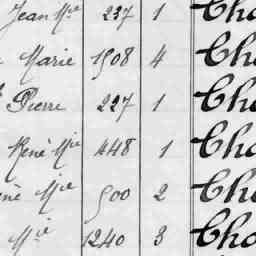 Jean Mie 237 1 Cho
Marie 1508 4 Cho
Pierre 227 1 Cho
René Mie 448 1 Cho
Mie 500 2 Cho
Mie 1240 3 Cho